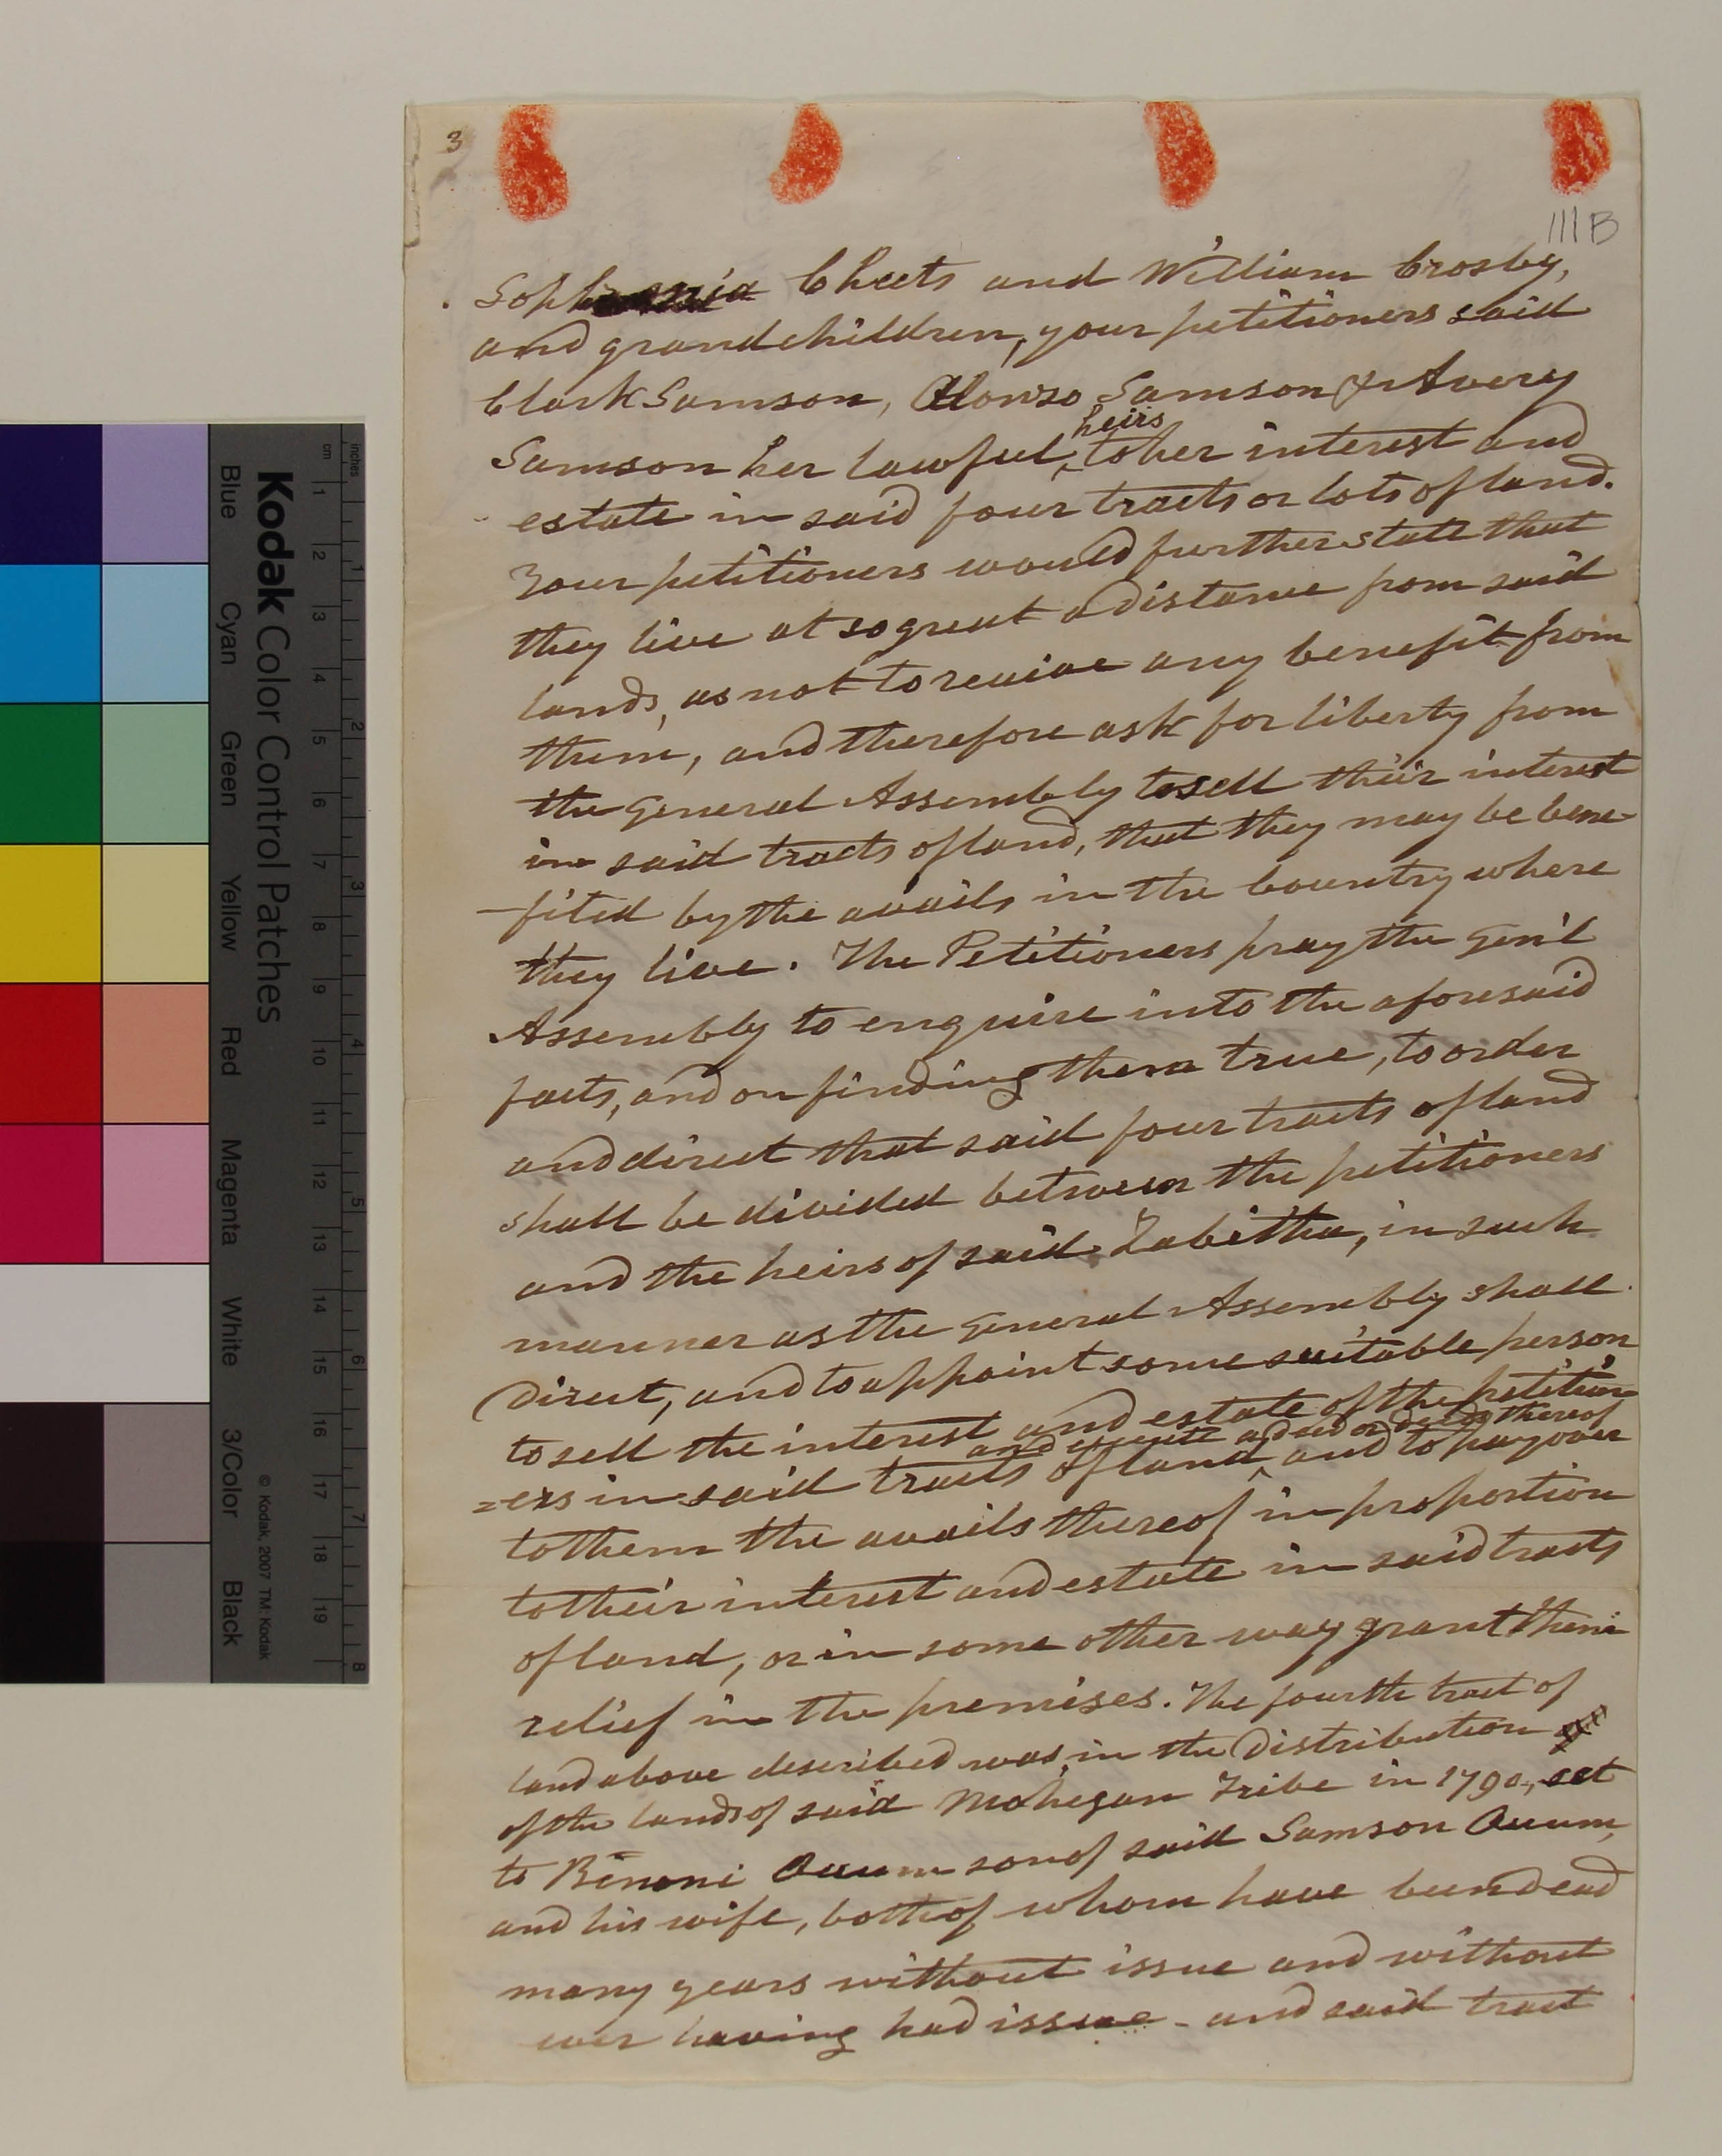 3
111 B
Sophronia Cheets and William Crosby,
and grandchildren, your petitioners said
Clark Samson, Alonzo Samson & Avery
heirs
Samson her lawful ^ to her interest and
estate in said four tracts or lots of land.
Your petitioners would further state that
they live at so great a distance from said
lands, as not to receive any benefit from
them, and therefore ask for liberty from
the General Assembly to sell their interest
in said tracts of land, that they may be bene-
-fited by the avails in the Country where
they live. The Petitioners pray the Gen'l
Assembly to enquire into the aforesaid
facts, and on finding them true, to order
and direct that said four tracts of land
shall be divided between the petitioners
and the heirs of said Tabitha, in such
manner as the General Assembly shall
direct, and to appoint some suitable person
to sell the interest and estate of the petition
and execute a deed or deeds thereof
=ers in said tracts of land ^ and to pay over
to them the avails thereof in proportion
to their interest and estate in said tracts
of land, or in some other way grant them
relief in the premises. The fourth tract of
land above described was, in the distribution
of the lands of said Mohegan Tribe in 1790, set
to Benoni Occum son of said Samson Occum,
and his wife, both of whom have been dead
many years without issue and without
ever having had issue - and said tract
Kodak Color Control Patches
© Kodak, 2007 TM: Kodak
Blue Cyan Green Yellow Red Magenta White 3/Color Black
inches 1 2 3 4 5 6 7 8
cm 1 2 3 4 5 6 7 8 9 10 11 12 13 14 15 16 17 18 19